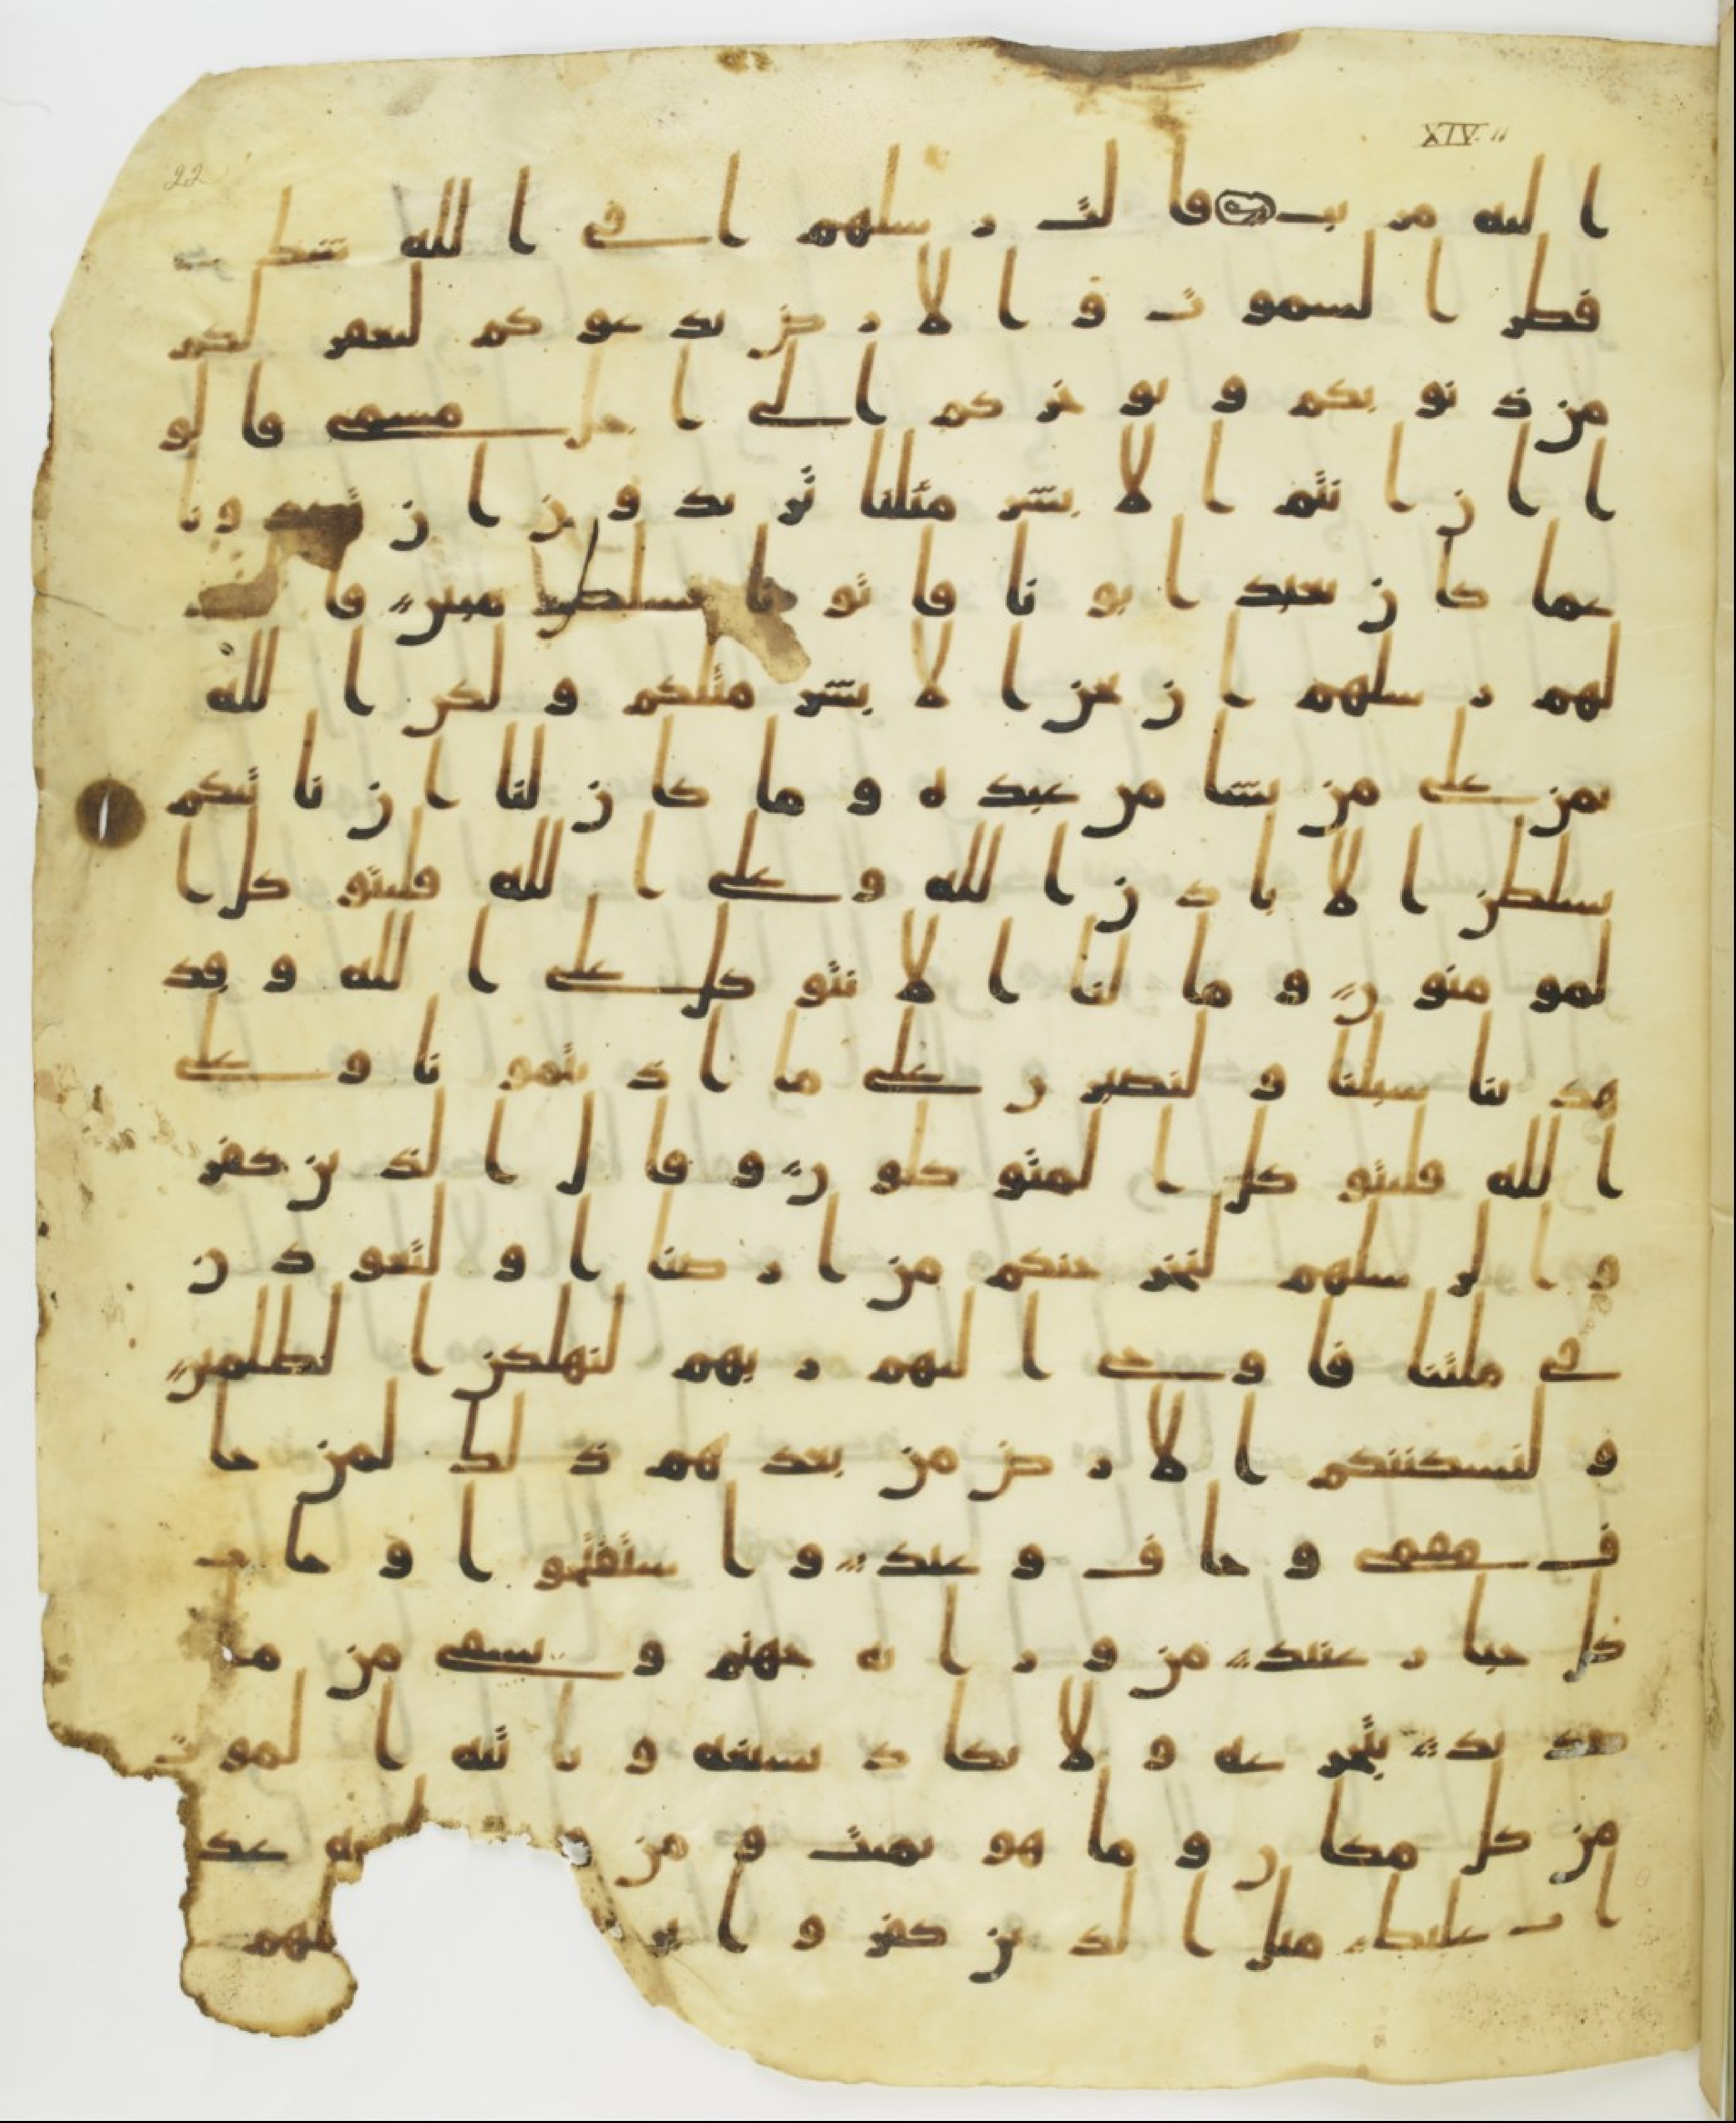 XIV. 11
22
اليه مريب قالت رسلهم افي الله شك
فطر السموت و الارض يدعوكم ليغفر لكم
من ذنوبكم و يوخركم الى اجل مسمى قالو
ا ان انتم الا بشر مثلنا تريدون ان تصدونا
عما كان يعبد ابونا فاتونا بسلطن مبين قالت
لهم رسلهم ان نحن الا بشر مثلكم و لكن الله
يمن على من يشا من عبده و ما كان لنا ان ناتيكم
بسلطن الا باذن الله و على الله فليتوكل ا
لمومنون و ما لنا الا نتوكل على الله و قد
هدينا سبلنا و لنصبرن على ما اذيتمونا و على
الله فليتوكل المتوكلون و قال الذين كفر
و ا لرسلهم لنخرجنكم من ارضنا او لتعودن
في ملتنا فاوحى اليهم ربهم لنهلكن الظلمين
و لنسكننكم الارض من بعدهم ذلك لمن خا
ف مقمي و خاف و عيد و استفتحوا و خاب
كل جبار عنيد من وراىه جهنم و يسقى من ما
صديد يتجرعه و لا يكاد يسيغه و ياتيه الموت
من كل مكان و ما هو بميت و من عذ
اب غليظ مثل الذين كفروا لهم